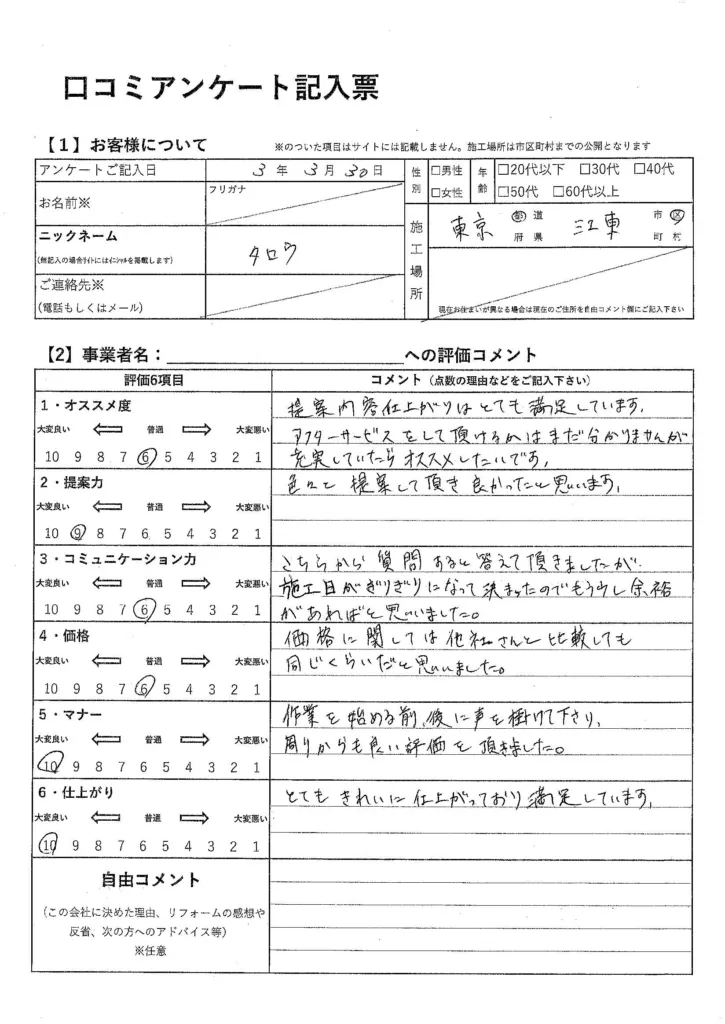 口コミアンケート記入票
【1】お客様について ※のついた項目はサイトには記載しません。施工場所は市区町村までの公開となります
アンケートご記入日 3 年 3 月 30 日
性別 □男性 □女性
年齢 □20代以下 □30代 □40代
□50代 □60代以上
お名前※ フリガナ
ニックネーム タロウ
(無記入の場合サイトにはイニシャルを掲載します)
ご連絡先※
(電話もしくはメール)
施工場所 東京 都 道 府 県 江東 市 区 町 村
現在お住まいが異なる場合は現在のご住所を自由コメント側にご記入下さい
【2】事業者名：____________________への評価コメント
評価6項目 コメント（点数の理由などをご記入下さい）
1・オススメ度
大変良い ⇐ 普通 ⇒ 大変悪い
10 9 8 7 6 5 4 3 2 1
提案内容仕上がりはとても満足しています。
アフターサービスをして頂けるかはまだ分かりませんが
充実していたらオススメしたいです。
2・提案力
大変良い ⇐ 普通 ⇒ 大変悪い
10 9 8 7 6 5 4 3 2 1
色々と提案して頂き良かったと思います。
3・コミュニケーション力
大変良い ⇐ 普通 ⇒ 大変悪い
10 9 8 7 6 5 4 3 2 1
こちらから質問すると答えて頂きましたが
施工日がぎりぎりになって決まったのでもう少し余裕
があればと思いました。
4・価格
大変良い ⇐ 普通 ⇒ 大変悪い
10 9 8 7 6 5 4 3 2 1
価格に関しては他社さんと比較しても
同じくらいだと思いました。
5・マナー
大変良い ⇐ 普通 ⇒ 大変悪い
10 9 8 7 6 5 4 3 2 1
作業を始める前、後に声を掛けて下さり、
周りからも良い評価を頂きました。
6・仕上がり
大変良い ⇐ 普通 ⇒ 大変悪い
10 9 8 7 6 5 4 3 2 1
とてもきれいに仕上がっており満足しています。
自由コメント
（この会社に決めた理由、リフォームの感想や
反省、次の方へのアドバイス等）
※任意